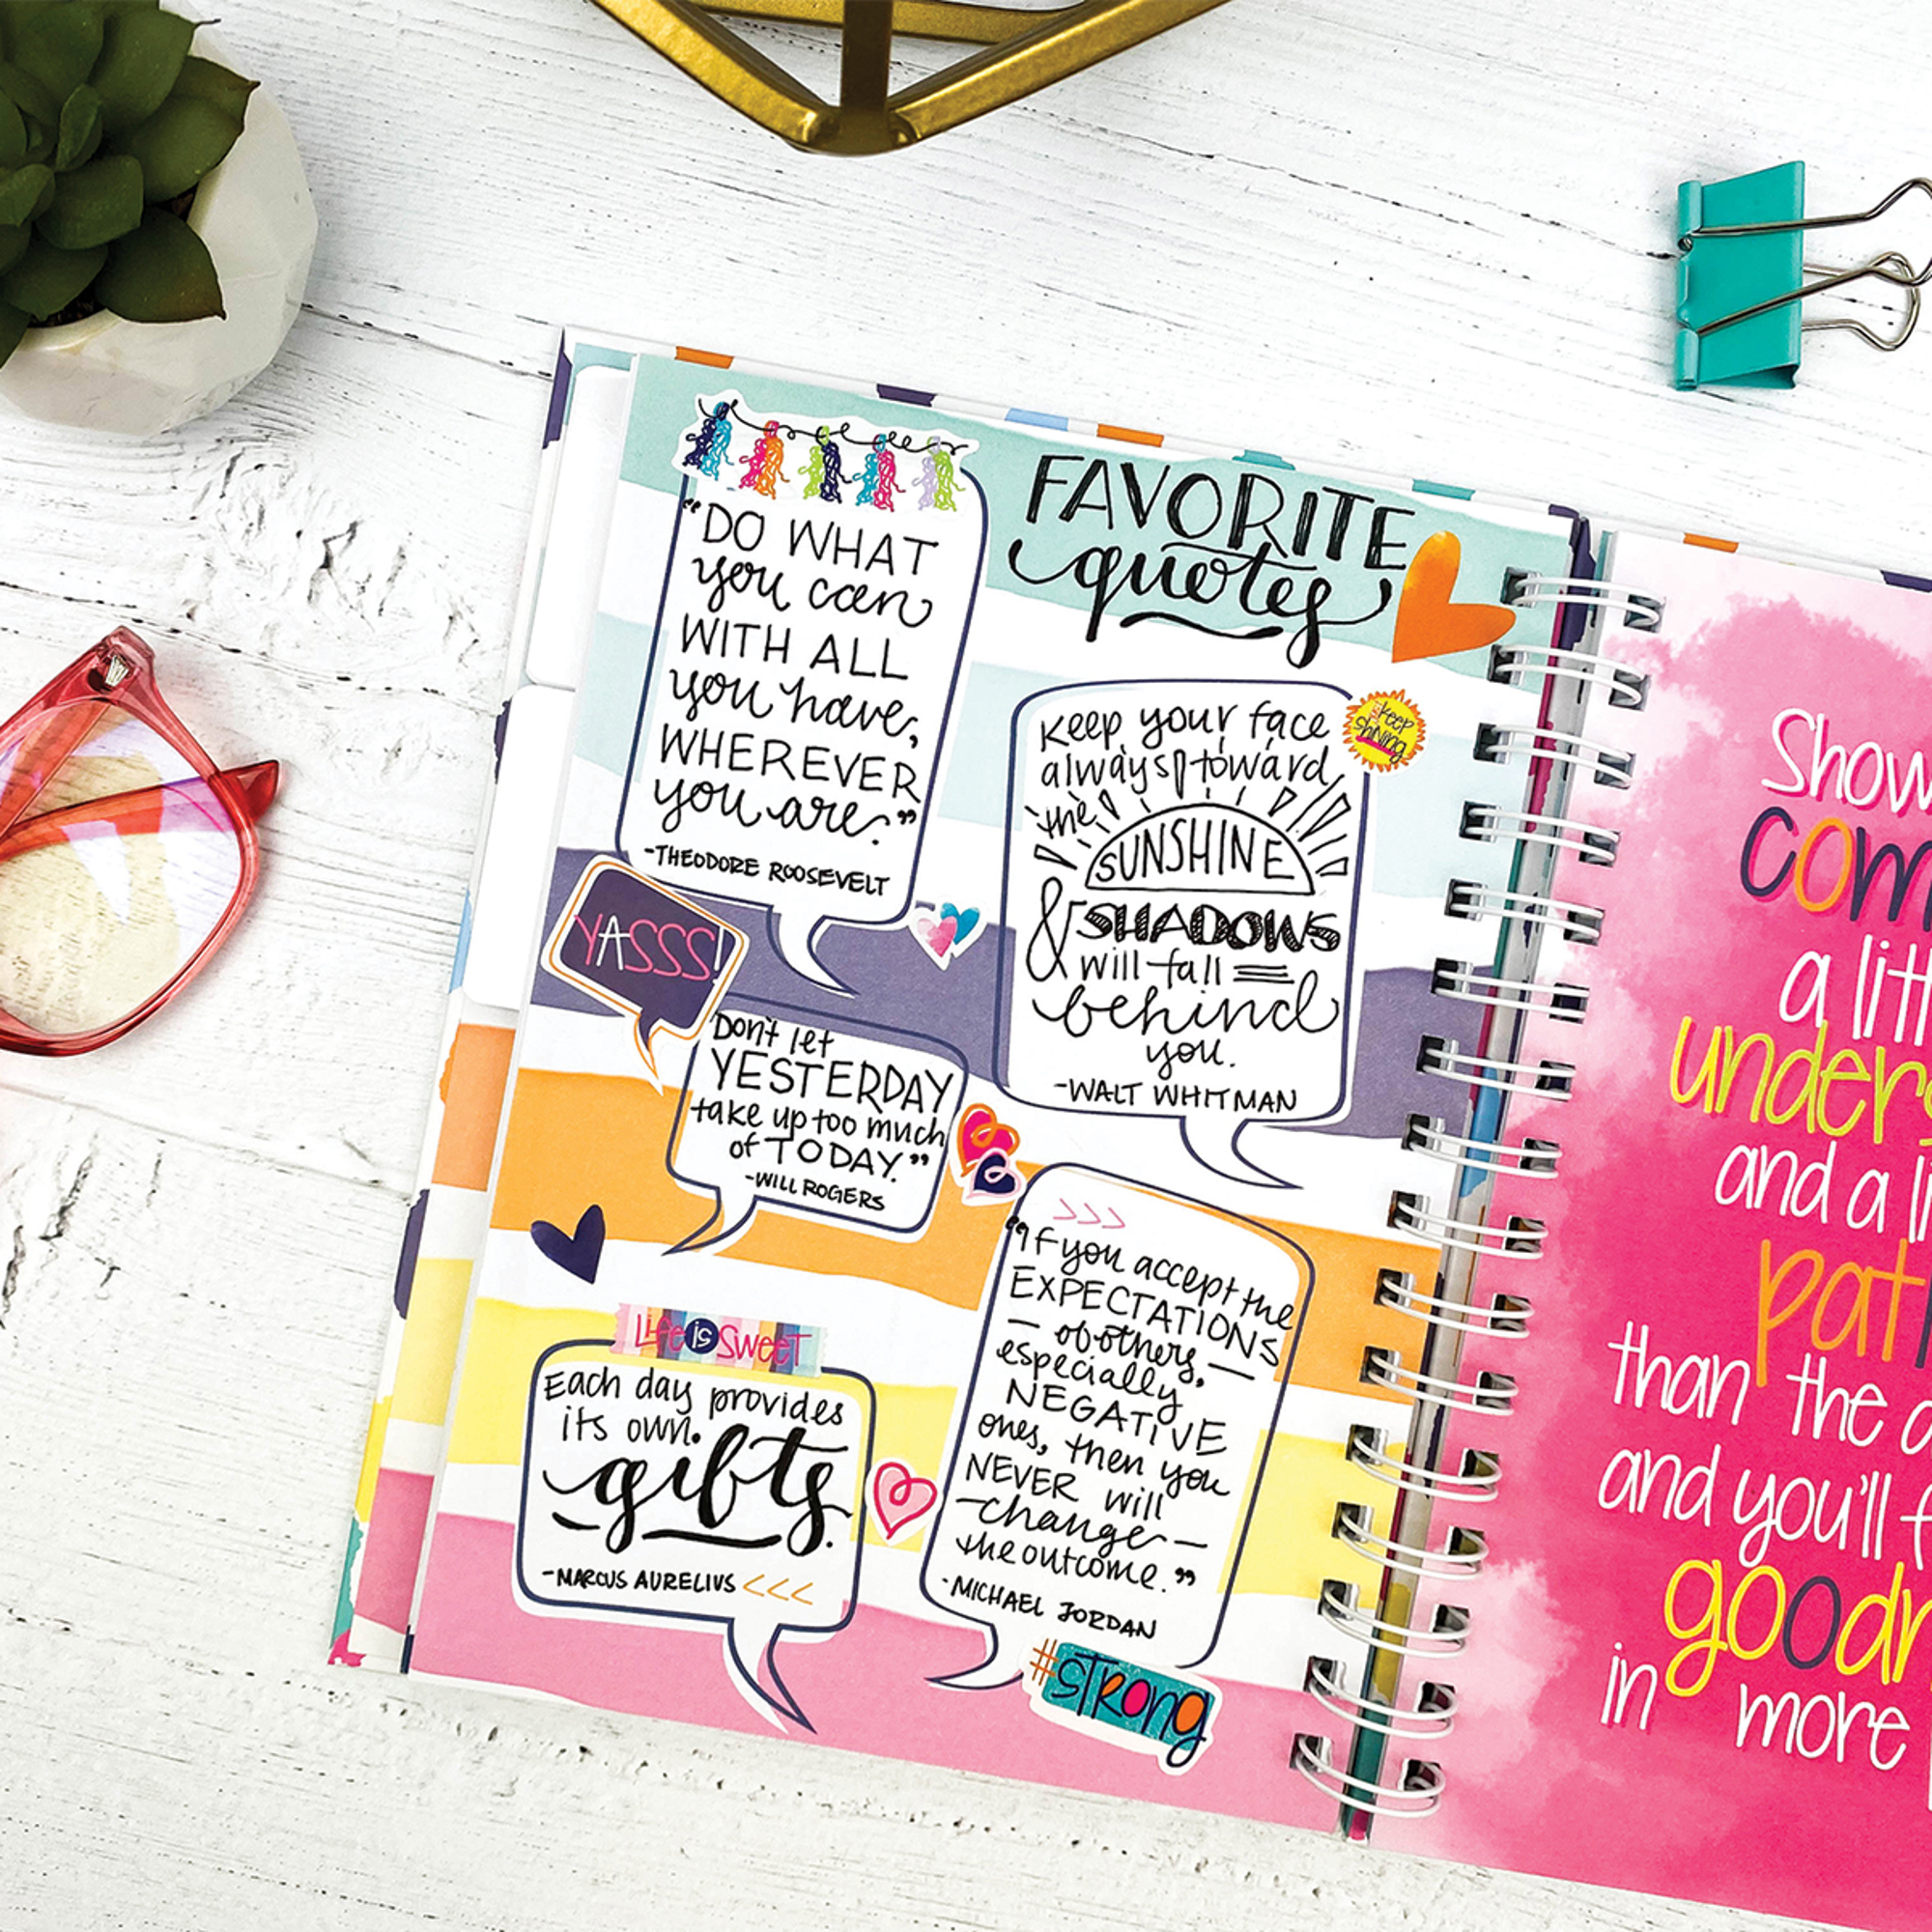 FAVORITE
quotes
"DO WHAT
you can
WITH ALL
you have,
WHEREVER
you are."
-THEODORE ROOSEVELT
Keep your face
always toward
the
SUNSHINE
& SHADOWS
will fall
behind
you.
-WALT WHITMAN
Keep
shining
YASSS!
Don't let
YESTERDAY
take up too much
of TODAY."
-WILL ROGERS
"If you accept the
EXPECTATIONS
of others,
especially
NEGATIVE
ones, then you
NEVER will
change
the outcome."
-MICHAEL JORDAN
#STRONG
Life is Sweet
Each day provides
its own
gifts.
-MARCUS AURELIUS <<<
Show
com
a litt
unders
and a li
pat
than the
and you'll f
goodn
in more